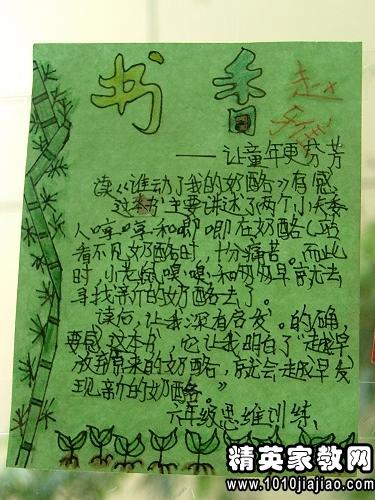 书香
——让童年更芬芳
读《谁动了我的奶酪》有感
这本书主要讲述了两个小矮
人哼哼和唧唧在奶酪C站
看不见奶酪时,十分痛苦。而此
时,小老鼠嗅嗅,和匆匆早就去
寻找新的奶酪去了。
读后,让我深有启发。的确,
感这本书,它让我明白了“越早
放弃原来的奶酪,就会越早发
现新的奶酪。”
六年级思维训练、
精英家教网
www.1010jiajiao.com